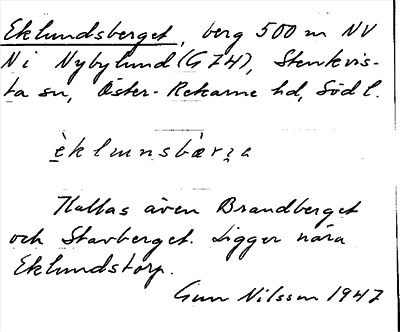 Eklundsberget, berg 500 m NV
N i Nybylund (G 7 H), Stenkvis-
ta sn, Öster-Rekarne hd, Södl.
èklunsbær̩a
Kallas även Brandberget
och Stavberget. Ligger nära
Eklundstorp.
Gun Nilsson 1947